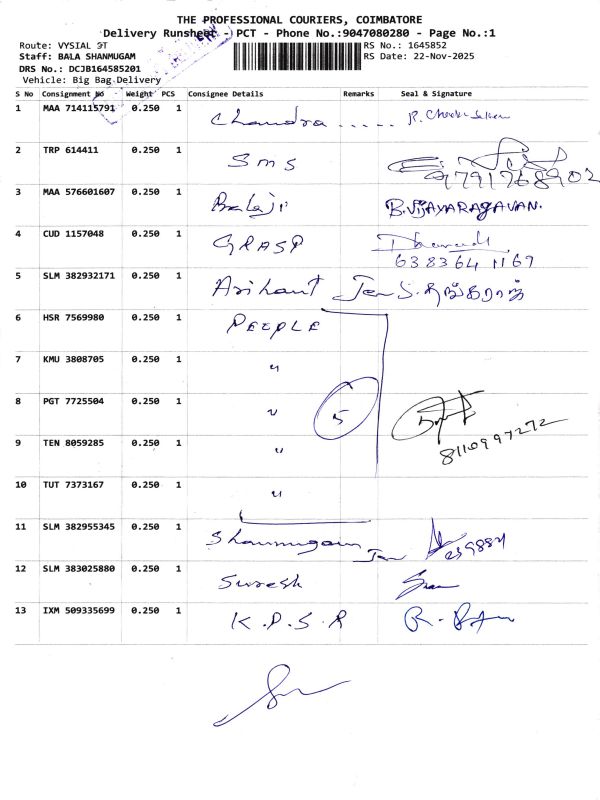 THE PROFESSIONAL COURIERS, COIMBATORE
Delivery Runsheet - PCT - Phone No.:9047080280 - Page No.:1
Route: VYSIAL ST RS No.: 1645852
Staff: BALA SHANMUGAM RS Date: 22-Nov-2025
DRS No.: DCJB164585201
Vehicle: Big Bag Delivery
S No Consignment No Weight PCS Consignee Details Remarks Seal & Signature
1 MAA 714115791 0.250 1 Chandra .....
2 TRP 614411 0.250 1 Sms 9791768902
3 MAA 576601607 0.250 1 Balaji B.VIJAYARAGAVAN.
4 CUD 1157048 0.250 1 GRASP
638364 1167
5 SLM 382932171 0.250 1 Arihant Jen S. தங்கராஜ்
6 HSR 7569980 0.250 1 PEOPLE
7 KMU 3808705 0.250 1 "
8 PGT 7725504 0.250 1 " 5
9 TEN 8059285 0.250 1 " 8110997272
10 TUT 7373167 0.250 1 "
11 SLM 382955345 0.250 1 Shanmugam Jen
12 SLM 383025880 0.250 1 Suresh
13 IXM 509335699 0.250 1 K.P.S.R